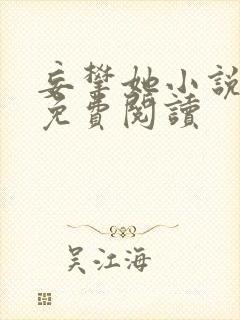 妄攀她小說
免費閱讀
吴江海